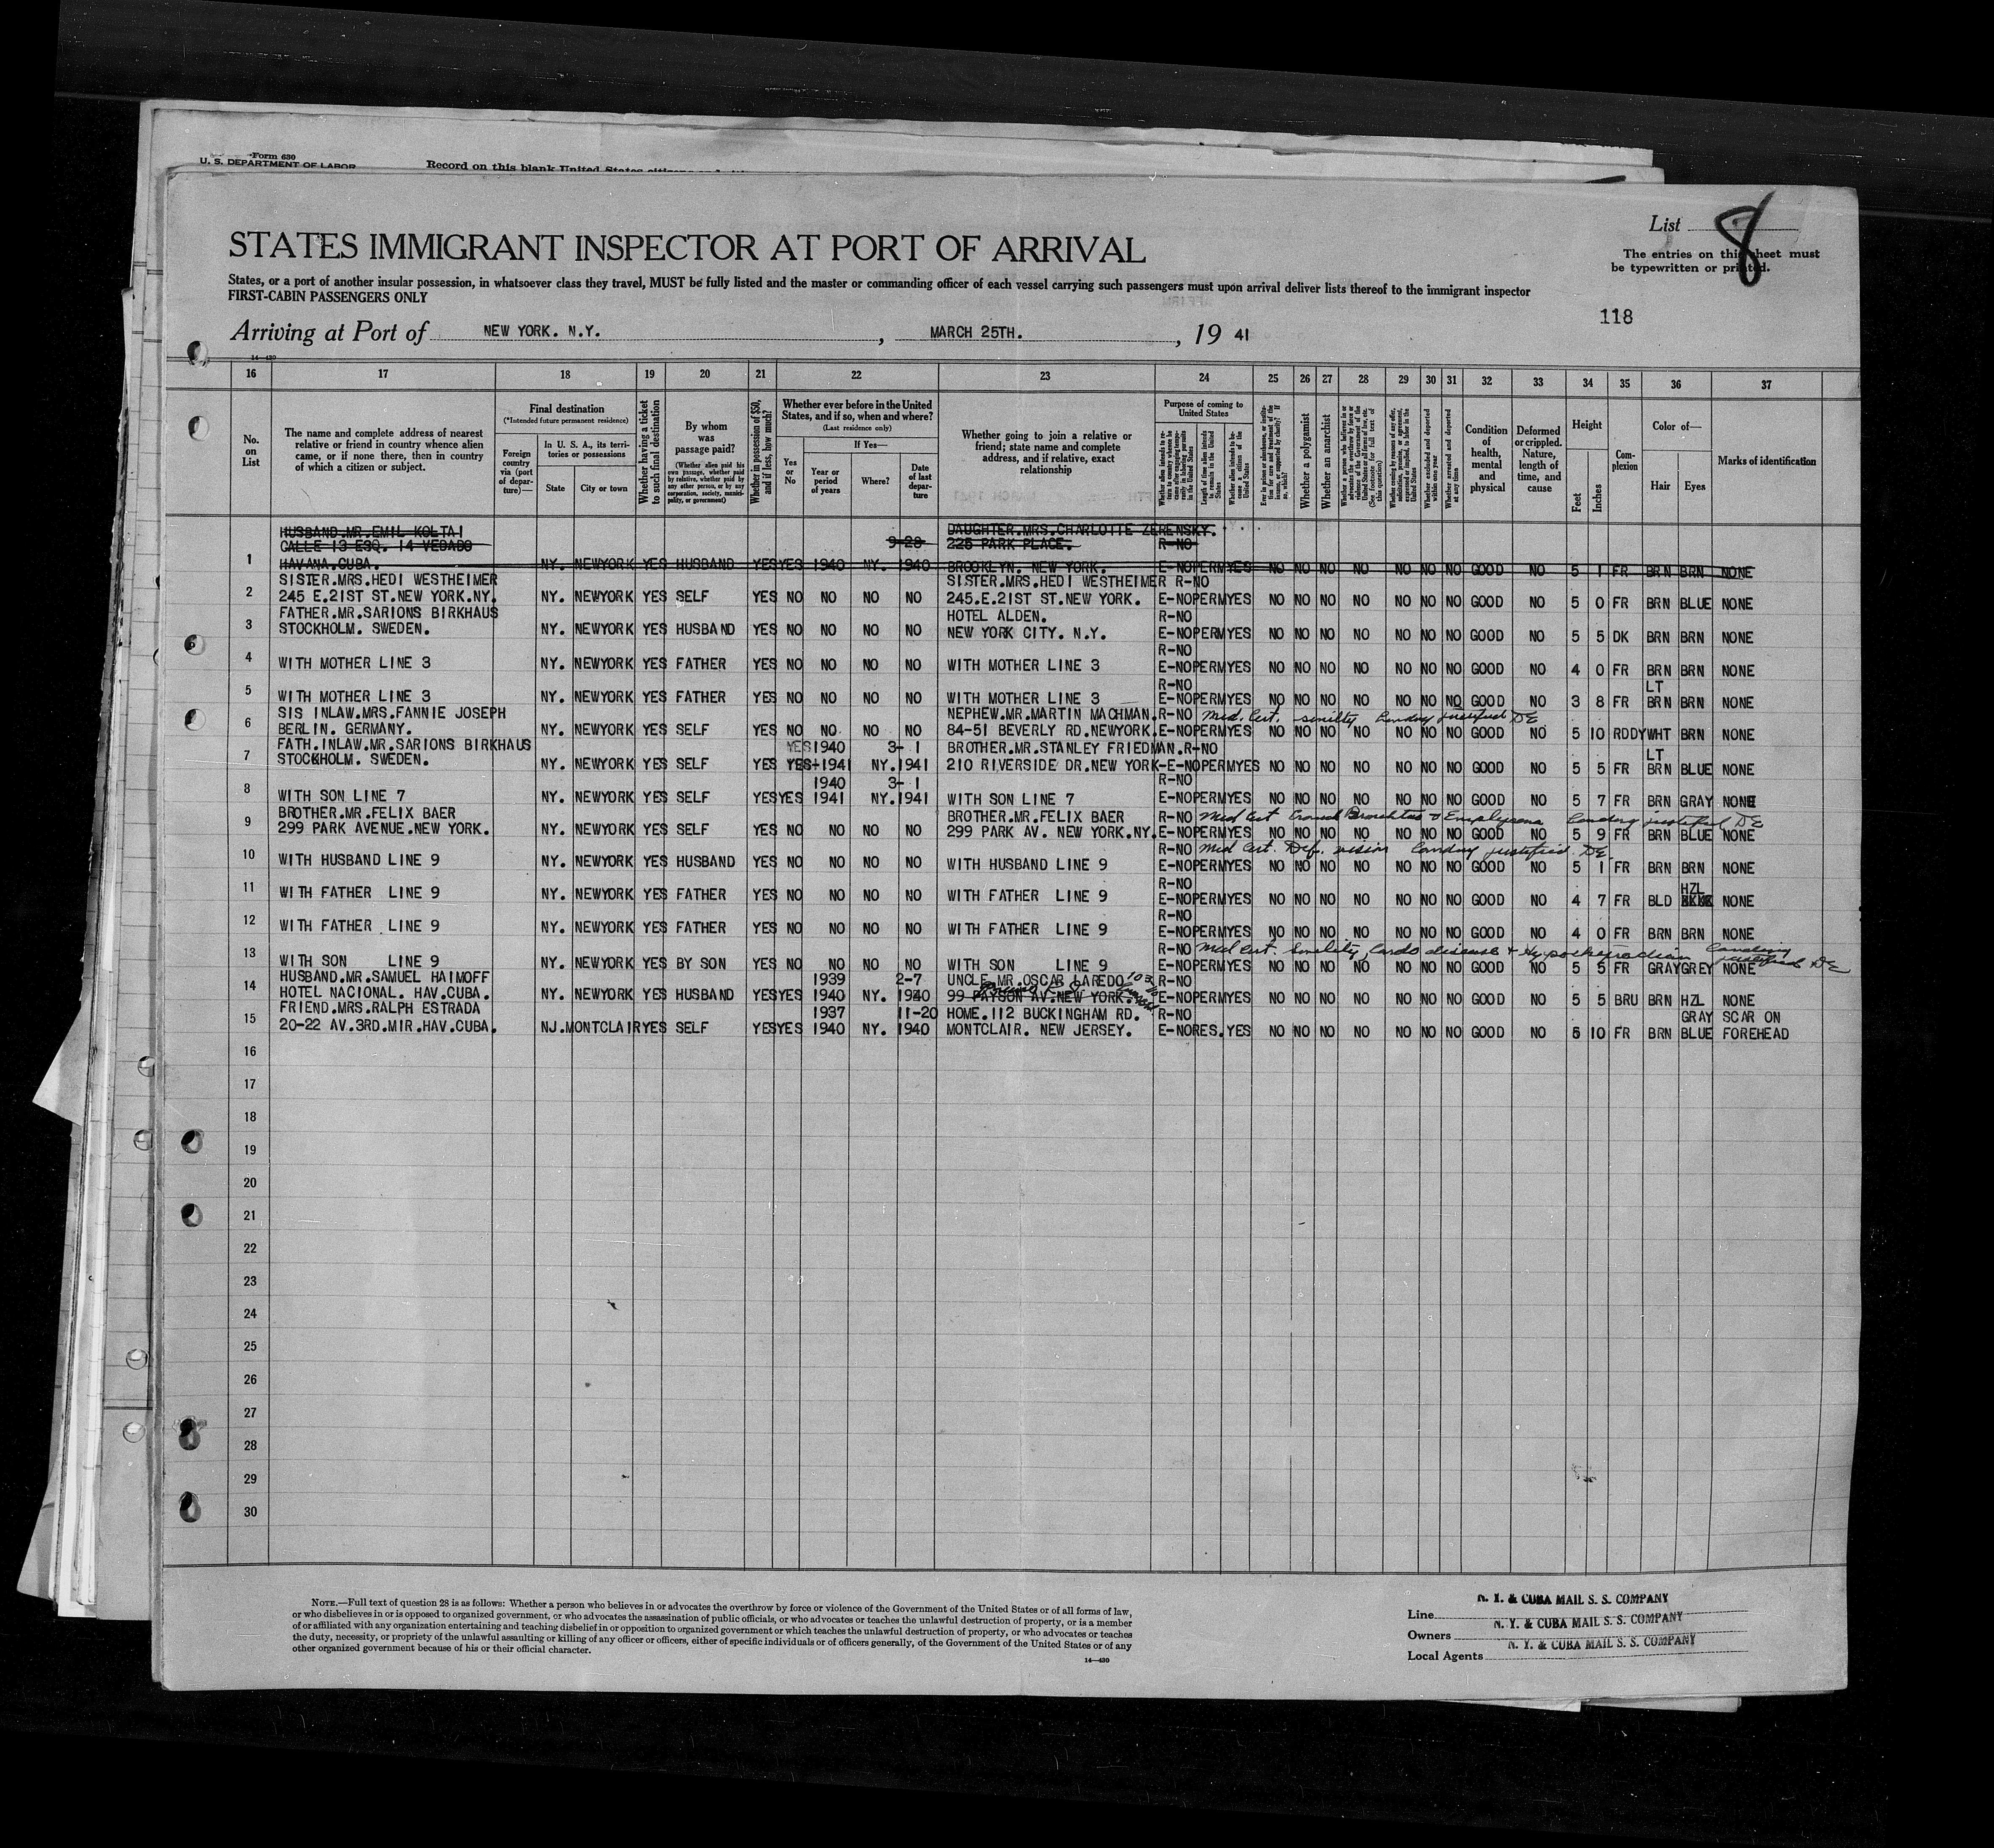 Form 630
U. S. DEPARTMENT OF LABOR
Record on this blank United States citizens and
STATES IMMIGRANT INSPECTOR AT PORT OF ARRIVAL
List 8
The entries on this sheet must
be typewritten or printed.
States, or a port of another insular possession, in whatsoever class they travel, MUST be fully listed and the master or commanding officer of each vessel carrying such passengers must upon arrival deliver lists thereof to the immigrant inspector
FIRST-CABIN PASSENGERS ONLY
118
Arriving at Port of NEW YORK. N.Y. , MARCH 25TH. , 19 41
14—430
16 17 18 19 20 21 22 23 24 25 26 27 28 29 30 31 32 33 34 35 36 37
No. on List
The name and complete address of nearest relative or friend in country whence alien came, or if none there, then in country of which a citizen or subject.
Final destination
(*Intended future permanent residence)
Foreign country via (port of departure)—
In U. S. A., its territories or possessions
State
City or town
Whether having a ticket to such final destination
By whom was passage paid?
(Whether alien paid his own passage, whether paid by relative, whether paid by any other person, or by any corporation, society, municipality, or government)
Whether in possession of $50, and if less, how much?
Whether ever before in the United States, and if so, when and where?
(Last residence only)
Yes or No
If Yes—
Year or period of years
Where?
Date of last departure
Whether going to join a relative or friend; state name and complete address, and if relative, exact relationship
Purpose of coming to United States
Whether a polygamist
Whether an anarchist
Whether excluded and deported within one year
Whether arrested and deported at any time
Condition of health, mental and physical
Deformed or crippled. Nature, length of time, and cause
Height
Feet
Inches
Complexion
Color of—
Hair
Eyes
Marks of identification
HUSBAND.MR.EMIL KOLTAI DAUGHTER.MRS.CHARLOTTE ZERENSKY.
CALLE 13 ESQ. 14 VEDADO 9-28 225 PARK PLACE. R-NO
1 HAVANA.CUBA. NY. NEWYORK YES HUSBAND YES YES 1940 NY. 1940 BROOKLYN. NEW YORK. E-NO PERM YES NO NO NO NO NO NO NO GOOD NO 5 1 FR BRN BRN NONE
SISTER.MRS.HEDI WESTHEIMER SISTER.MRS.HEDI WESTHEIMER R-NO
2 245 E.21ST ST.NEW YORK.NY. NY. NEWYORK YES SELF YES NO NO NO NO 245.E.21ST ST.NEW YORK. E-NO PERM YES NO NO NO NO NO NO NO GOOD NO 5 0 FR BRN BLUE NONE
FATHER.MR.SARIONS BIRKHAUS HOTEL ALDEN. R-NO
3 STOCKHOLM. SWEDEN. NY. NEWYORK YES HUSBAND YES NO NO NO NO NEW YORK CITY. N.Y. E-NO PERM YES NO NO NO NO NO NO NO GOOD NO 5 5 DK BRN BRN NONE
R-NO
4 WITH MOTHER LINE 3 NY. NEWYORK YES FATHER YES NO NO NO NO WITH MOTHER LINE 3 E-NO PERM YES NO NO NO NO NO NO NO GOOD NO 4 0 FR BRN BRN NONE
R-NO LT
5 WITH MOTHER LINE 3 NY. NEWYORK YES FATHER YES NO NO NO NO WITH MOTHER LINE 3 E-NO PERM YES NO NO NO NO NO NO NO GOOD NO 3 8 FR BRN BRN NONE
SIS INLAW.MRS.FANNIE JOSEPH NEPHEW.MR.MARTIN MACHMAN. R-NO Med. Cert. senility Landing justified DE
6 BERLIN. GERMANY. NY. NEWYORK YES SELF YES NO NO NO NO 84-51 BEVERLY RD.NEWYORK. E-NO PERM YES NO NO NO NO NO NO NO GOOD NO 5 10 RDDY WHT BRN NONE
FATH.INLAW.MR.SARIONS BIRKHAUS YES 1940 3- 1 BROTHER.MR.STANLEY FRIEDMAN. R-NO LT
7 STOCKHOLM. SWEDEN. NY. NEWYORK YES SELF YES YES-1941 NY. 1941 210 RIVERSIDE DR.NEW YORK- E-NO PERM YES NO NO NO NO NO NO NO GOOD NO 5 5 FR BRN BLUE NONE
1940 3- 1 R-NO
8 WITH SON LINE 7 NY. NEWYORK YES SELF YES YES 1941 NY. 1941 WITH SON LINE 7 E-NO PERM YES NO NO NO NO NO NO NO GOOD NO 5 7 FR BRN GRAY NONE
BROTHER.MR.FELIX BAER BROTHER.MR.FELIX BAER R-NO Med Cert Bronchitis & Emphysema Landing justified DE
9 299 PARK AVENUE.NEW YORK. NY. NEWYORK YES SELF YES NO NO NO NO 299 PARK AV. NEW YORK.NY. E-NO PERM YES NO NO NO NO NO NO NO GOOD NO 5 9 FR BRN BLUE NONE
R-NO Med Cert. Def. vision Landing justified. DE
10 WITH HUSBAND LINE 9 NY. NEWYORK YES HUSBAND YES NO NO NO NO WITH HUSBAND LINE 9 E-NO PERM YES NO NO NO NO NO NO NO GOOD NO 5 1 FR BRN BRN NONE
R-NO HZL
11 WITH FATHER LINE 9 NY. NEWYORK YES FATHER YES NO NO NO NO WITH FATHER LINE 9 E-NO PERM YES NO NO NO NO NO NO NO GOOD NO 4 7 FR BLD NONE
R-NO
12 WITH FATHER LINE 9 NY. NEWYORK YES FATHER YES NO NO NO NO WITH FATHER LINE 9 E-NO PERM YES NO NO NO NO NO NO NO GOOD NO 4 0 FR BRN BRN NONE
R-NO Med Cert. Senility, Cardo disease & Landing justified DE
13 WITH SON LINE 9 NY. NEWYORK YES BY SON YES NO NO NO NO WITH SON LINE 9 E-NO PERM YES NO NO NO NO NO NO NO GOOD NO 5 5 FR GRAY GREY NONE
HUSBAND.MR.SAMUEL HAIMOFF 1939 2-7 UNCLE.MR.OSCAR LAREDO R-NO
14 HOTEL NACIONAL. HAV.CUBA. NY. NEWYORK YES HUSBAND YES YES 1940 NY. 1940 99 PAYSON AV.NEW YORK. E-NO PERM YES NO NO NO NO NO NO NO GOOD NO 5 5 BRU BRN HZL NONE
FRIEND.MRS.RALPH ESTRADA 1937 11-20 HOME.112 BUCKINGHAM RD. R-NO GRAY SCAR ON
15 20-22 AV.3RD.MIR.HAV.CUBA. NJ. MONTCLAIR YES SELF YES YES 1940 NY. 1940 MONTCLAIR. NEW JERSEY. E-NO RES. YES NO NO NO NO NO NO NO GOOD NO 5 10 FR BRN BLUE FOREHEAD
16
17
18
19
20
21
22
23
24
25
26
27
28
29
30
NOTE.—Full text of question 28 is as follows: Whether a person who believes in or advocates the overthrow by force or violence of the Government of the United States or of all forms of law,
or who disbelieves in or is opposed to organized government, or who advocates the assassination of public officials, or who advocates or teaches the unlawful destruction of property, or is a member
of or affiliated with any organization entertaining and teaching disbelief in or opposition to organized government or which teaches the unlawful destruction of property, or who advocates or teaches
the duty, necessity, or propriety of the unlawful assaulting or killing of any officer or officers, either of specific individuals or of officers generally, of the Government of the United States or of any
other organized government because of his or their official character.
14—430
N. Y. & CUBA MAIL S. S. COMPANY
Line
N. Y. & CUBA MAIL S. S. COMPANY
Owners
N. Y. & CUBA MAIL S. S. COMPANY
Local Agents